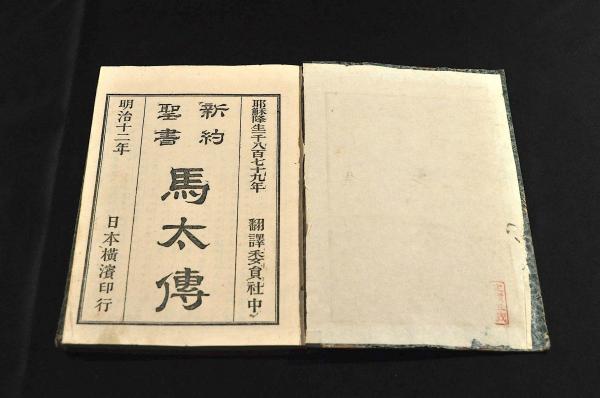 耶穌降生千八百七十九年
翻譯委員社中
新約
聖書
馬太傳
明治十二年
日本橫濱印行